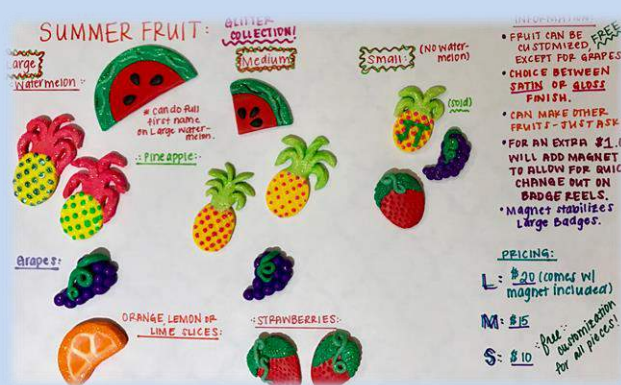 SUMMER FRUIT:
GLITTER
COLLECTION!
Large
Watermelon:
* can do full
first name
on Large water-
melon.
Medium
Small:
(NO Water-
melon)
(sold)
:Pineapple:
Grapes:
ORANGE LEMON OR
LIME SLICES:
:STRAWBERRIES:
INFORMATION:
• FRUIT CAN BE
CUSTOMIZED, FREE
EXCEPT FOR GRAPES
• CHOICE BETWEEN
SATIN OR GLOSS
FINISH.
• CAN MAKE OTHER
FRUITS - JUST ASK
• FOR AN EXTRA $1.0
WILL ADD MAGNET
TO ALLOW FOR QUIC
CHANGE OUT ON
BADGE REELS.
• Magnet stabilizes
Large Badges.
PRICING:
L: $20 (comes w/
magnet included)
M: $15
S: $10
free
customization
for all pieces!